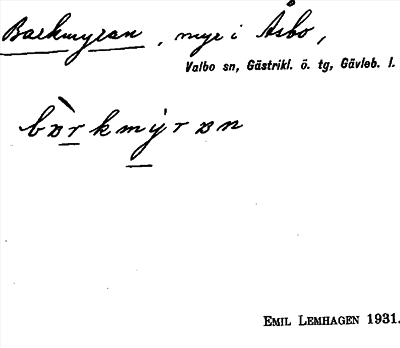 Barkmyran, myr i Åsbo,
Valbo sn, Gästrikl. ö. tg, Gävleb. l.
EMIL LEMHAGEN 1931.